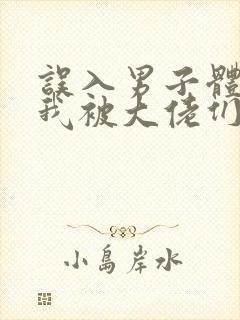 誤入男子體
我被大佬们
小島岸水